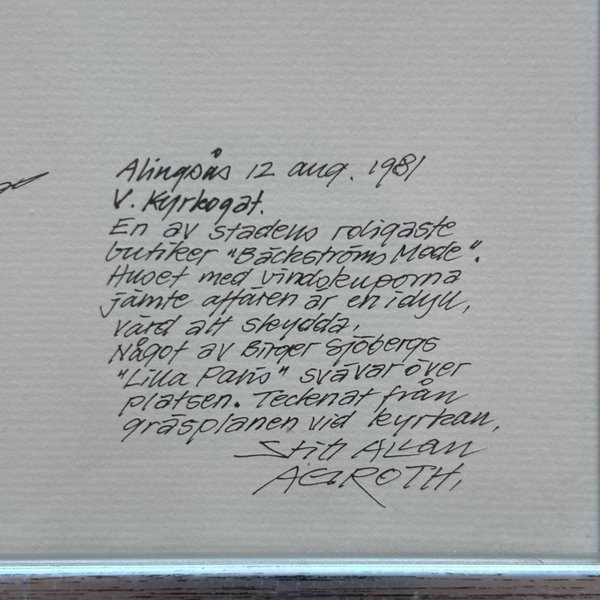 Alingsås 12 aug. 1981
V. Kyrkogat.
En av stadens roligaste
butiker "Bäckströms Mode".
Huset med vindskuporna
jämte affären är en idyll,
värd att skydda,
Något av Birger Sjöbergs
"Lilla Paris" svävar över
platsen. Tecknat från
gräsplanen vid kyrkan,
Allan
AGROTH,